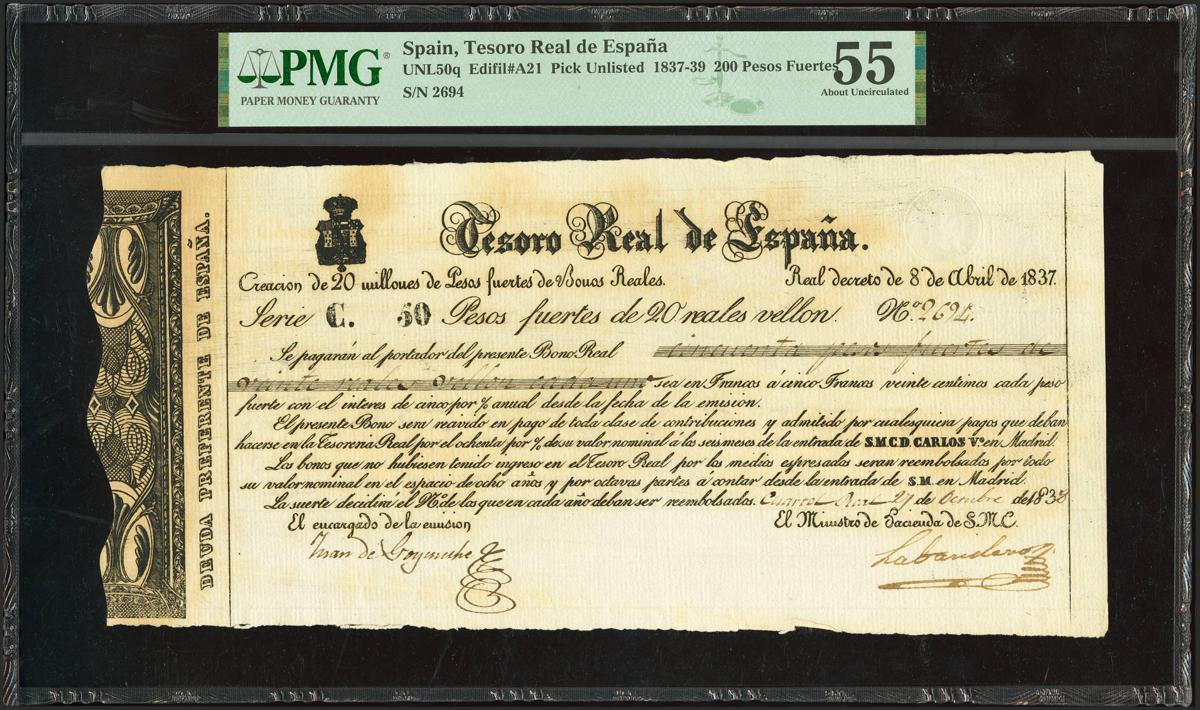 PMG®
PAPER MONEY GUARANTY
Spain, Tesoro Real de España
UNL50q Edifil#A21 Pick Unlisted 1837-39 200 Pesos Fuertes
S/N 2694
55
About Uncirculated
DEUDA PREFERENTE DE ESPAÑA.
Tesoro Real de España.
Creacion de 20 millones de Pesos fuertes de Bonos Reales. Real decreto de 8 de Abril de 1837.
Serie C. 50 Pesos fuertes de 20 reales vellon. N.º 2694.
Se pagarán al portador del presente Bono Real cincuenta pesos fuertes de
veinte reales vellon cada uno sea en Francos á cinco Francos veinte centimos cada peso
fuerte con el interes de cinco por % anual desde la fecha de la emision.
El presente Bono sera recivido en pago de toda clase de contribuciones y admitido por cualesquiera pagos que deban
hacerse en la Tesoreria Real por el ochenta por % de su valor nominal á los seis meses de la entrada de S.M.C.D. CARLOS V.º en Madrid.
Los bonos que no hubiesen tenido ingreso en el Tesoro Real por los medios espresados seran reembolsados por todo
su valor nominal en el espacio de ocho años y por octavas partes á contar desde la entrada de S.M. en Madrid.
La suerte decidirá el N.º de los que en cada año deban ser reembolsados. Cuartel Real 27 de Octubre de 1838
El encargado de la emision El Ministro de Hacienda de S.M.C.
Juan de Goyeneche Labandero